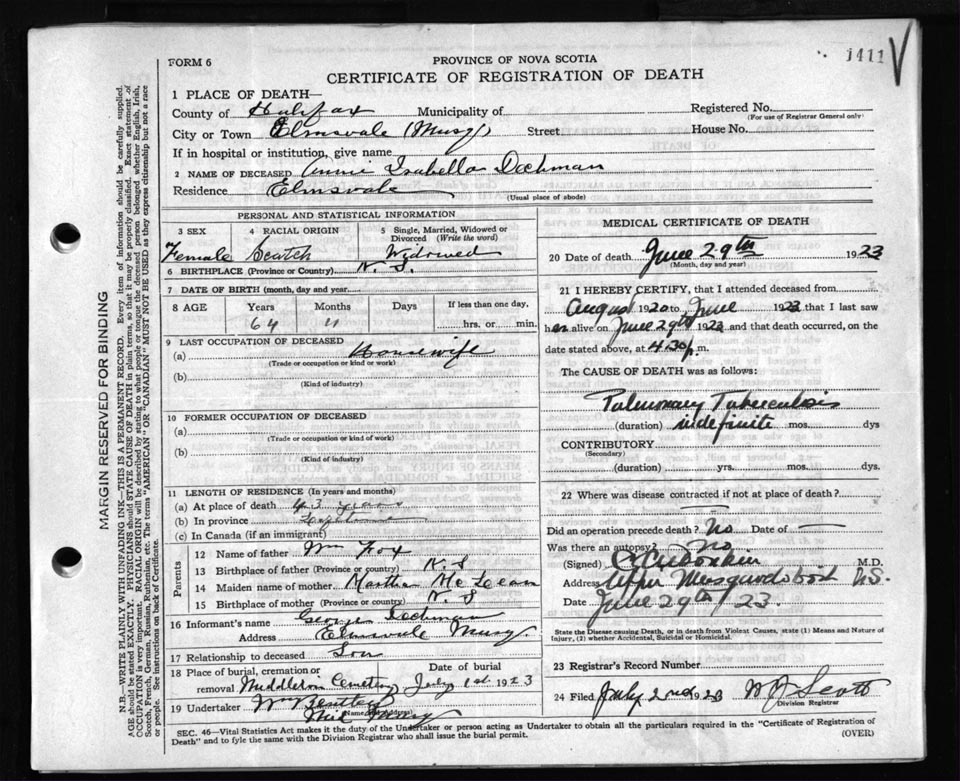 1411
FORM 6
PROVINCE OF NOVA SCOTIA
CERTIFICATE OF REGISTRATION OF DEATH
1 PLACE OF DEATH—
County of Halifax Municipality of
Registered No.
(For use of Registrar General only)
City or Town Elmsvale (Musq) Street House No.
If in hospital or institution, give name
2 NAME OF DECEASED Annie Isabella Dechman
Residence Elmsvale
(Usual place of abode)
PERSONAL AND STATISTICAL INFORMATION
3 SEX 4 RACIAL ORIGIN 5 Single, Married, Widowed or Divorced (Write the word)
Female Scotch Widowed
6 BIRTHPLACE (Province or Country) N. S.
7 DATE OF BIRTH (month, day and year
8 AGE Years Months Days If less than one day,
64 11 hrs. or min.
9 LAST OCCUPATION OF DECEASED
(a) Housewife
(Trade or occupation or kind or work)
(b)
(Kind of industry)
10 FORMER OCCUPATION OF DECEASED
(a)
(Trade or occupation or kind of work)
(b)
(Kind of industry)
11 LENGTH OF RESIDENCE (In years and months)
(a) At place of death 43 years
(b) In province
(c) In Canada (if an immigrant)
Parents
12 Name of father Wm Fox
13 Birthplace of father (Province or country) N. S
14 Maiden name of mother Martha McLean
15 Birthplace of mother (Province or country) N. S
16 Informant's name George Dechman
Address Elmsvale Musq.
17 Relationship to deceased Son
18 Place of burial, cremation or removal Date of burial
Middleton Cemetery July 1st 1923
19 Undertaker Wm
(Name
MEDICAL CERTIFICATE OF DEATH
20 Date of death June 29th 1923
(Month, day and year)
21 I HEREBY CERTIFY, that I attended deceased from
August 1920 to June 1923 that I last saw
her alive on June 29th 1923 and that death occurred, on
date stated above, at 4.30 p.m.
The CAUSE OF DEATH was as follows:
Pulmonary Tuberculosis
(duration) indefinite mos. dys
CONTRIBUTORY
(Secondary)
(duration) yrs. mos. dys.
22 Where was disease contracted if not at place of death?
Did an operation precede death? No Date of —
Was there an autopsy? No
(Signed) M.D.
Address Upper Musquodoboit N.S.
Date June 29th / 23.
State the Disease causing Death, or in death from Violent Causes, state (1) Means and Nature of
Injury, (2) whether Accidental, Suicidal or Homicidal.
23 Registrar's Record Number
24 Filed July 2nd 1923 Scott
Division Registrar
SEC. 46—Vital Statistics Act makes it the duty of the Undertaker or person acting as Undertaker to obtain all the particulars required in the "Certificate of Registration of
Death" and to fyle the same with the Division Registrar who shall issue the burial permit. (OVER)
MARGIN RESERVED FOR BINDING
N.B.—WRITE PLAINLY WITH UNFADING INK—THIS IS A PERMANENT RECORD. Every item of information should be carefully supplied.
AGE should be stated EXACTLY. PHYSICIANS should STATE CAUSE OF DEATH in plain terms, so that it may be properly classified. Exact statement of
OCCUPATION is very important. RACIAL ORIGIN will be described by stating to what people or tongue the deceased person belonged whether English, Irish,
Scotch, French, German, Russian, Ruthenian, etc. The terms "AMERICAN" OR "CANADIAN" MUST NOT BE USED as they express citizenship but not a race
or people. See instructions on back of Certificate.